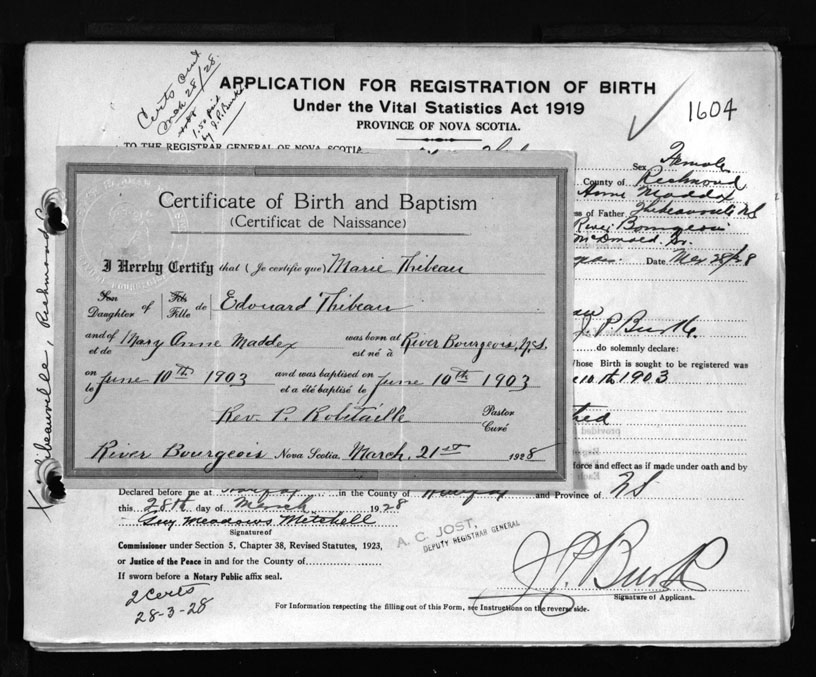 Certs out
Mch 28/28.
1.50 pd
by J.P. Burke
APPLICATION FOR REGISTRATION OF BIRTH
Under the Vital Statistics Act 1919
PROVINCE OF NOVA SCOTIA.
1604
TO THE REGISTRAR GENERAL OF NOVA SCOTIA
Sex Female
County of Richmond
Anne Maddex
ss of Father,
River Bourgeois
McDonald, Sr.
Date Mch 28/28
Certificate of Birth and Baptism
(Certificat de Naissance)
I Hereby Certify that (Je certifie que) Marie Thibeau
Son Daughter of Fils Fille de Edouard Thibeau
and of et de Mary Anne Maddex was born at est né à River Bourgeois, N.S.
on le June 10th 1903 and was baptised on et a été baptisé le June 10th 1903
Rev. P. Robitaille Pastor Curé
River Bourgeois Nova Scotia, March, 21st 1928
J. P. Burke.
do solemnly declare:
hose Birth is sought to be registered was
10th 1903
force and effect as if made under oath and by
Declared before me at Halifax in the County of Halifax and Province of NS
this 28th day of March 1928
Guy Meadows Mitchell
Signature of
Commissioner under Section 5, Chapter 38, Revised Statutes, 1923,
or Justice of the Peace in and for the County of
If sworn before a Notary Public affix seal.
A. C. JOST,
DEPUTY REGISTRAR GENERAL
J P Burke
Signature of Applicant.
2 Certs
28-3-28
For Information respecting the filling out of this Form, see Instructions on the reverse side.
X Thibeauville, Richmond Co